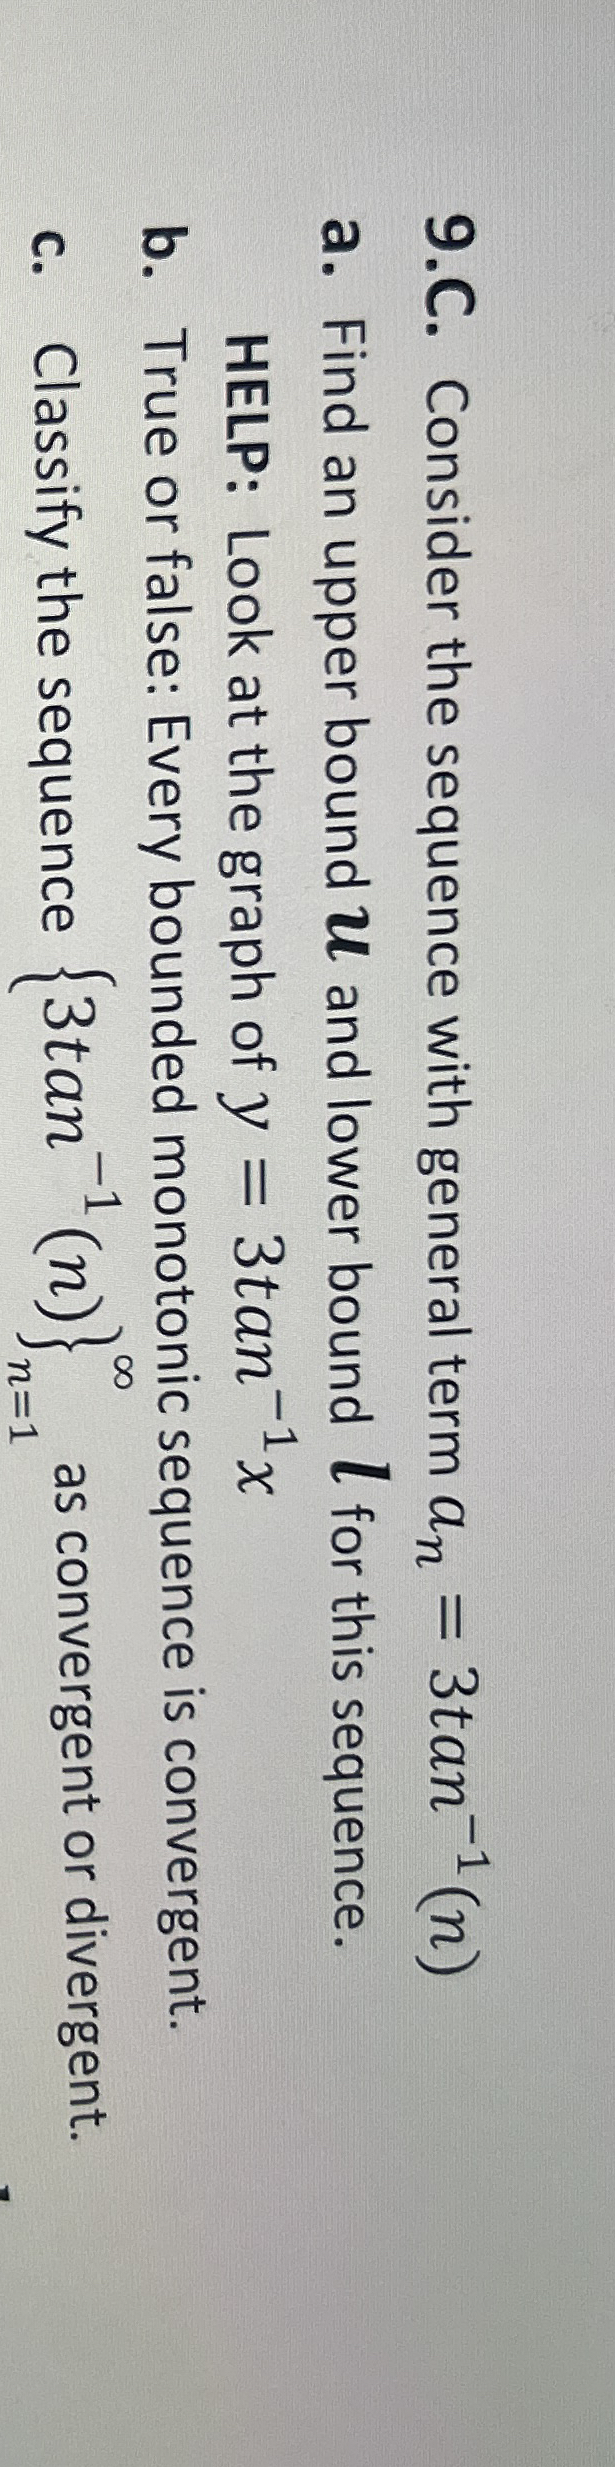 9.C. Consider the sequence with general term aₙ = 3tan⁻¹(n)
a. Find an upper bound u and lower bound l for this sequence.
HELP: Look at the graph of y = 3tan⁻¹x
b. True or false: Every bounded monotonic sequence is convergent.
c. Classify the sequence {3tan⁻¹(n)}ₙ₌₁^∞ as convergent or divergent.